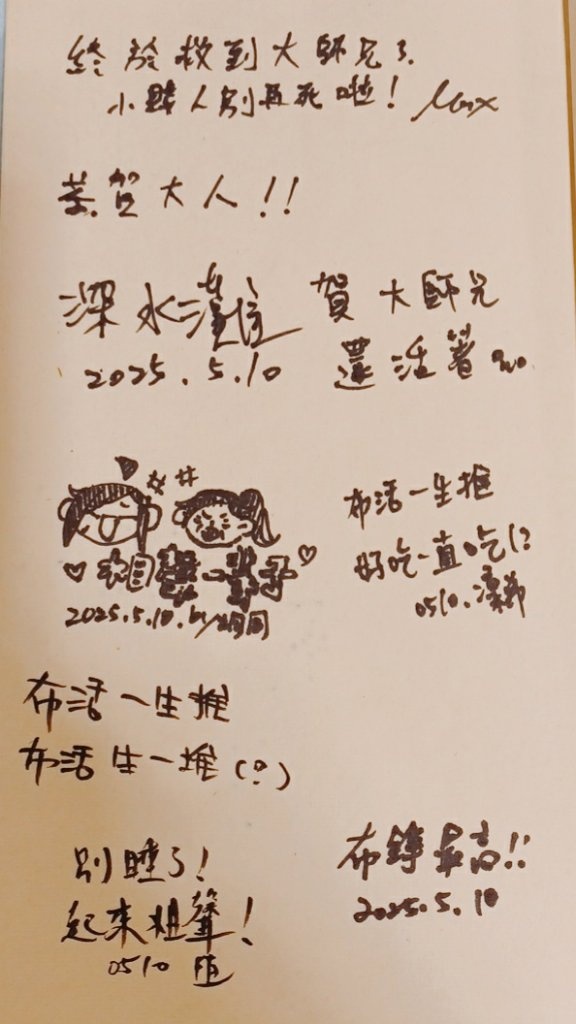 終於救到大師兄了.
小賤人別再死啦! Max
恭賀大人!!
深水灌
2025.5.10
賀大師兄
還活著
一輩子
2025.5.10.
布活一生推
好吃一直吃!?
0510.
布活一生推
布活生一堆(?)
別睡了!
起來
0510
布 最高!!
2025.5.10